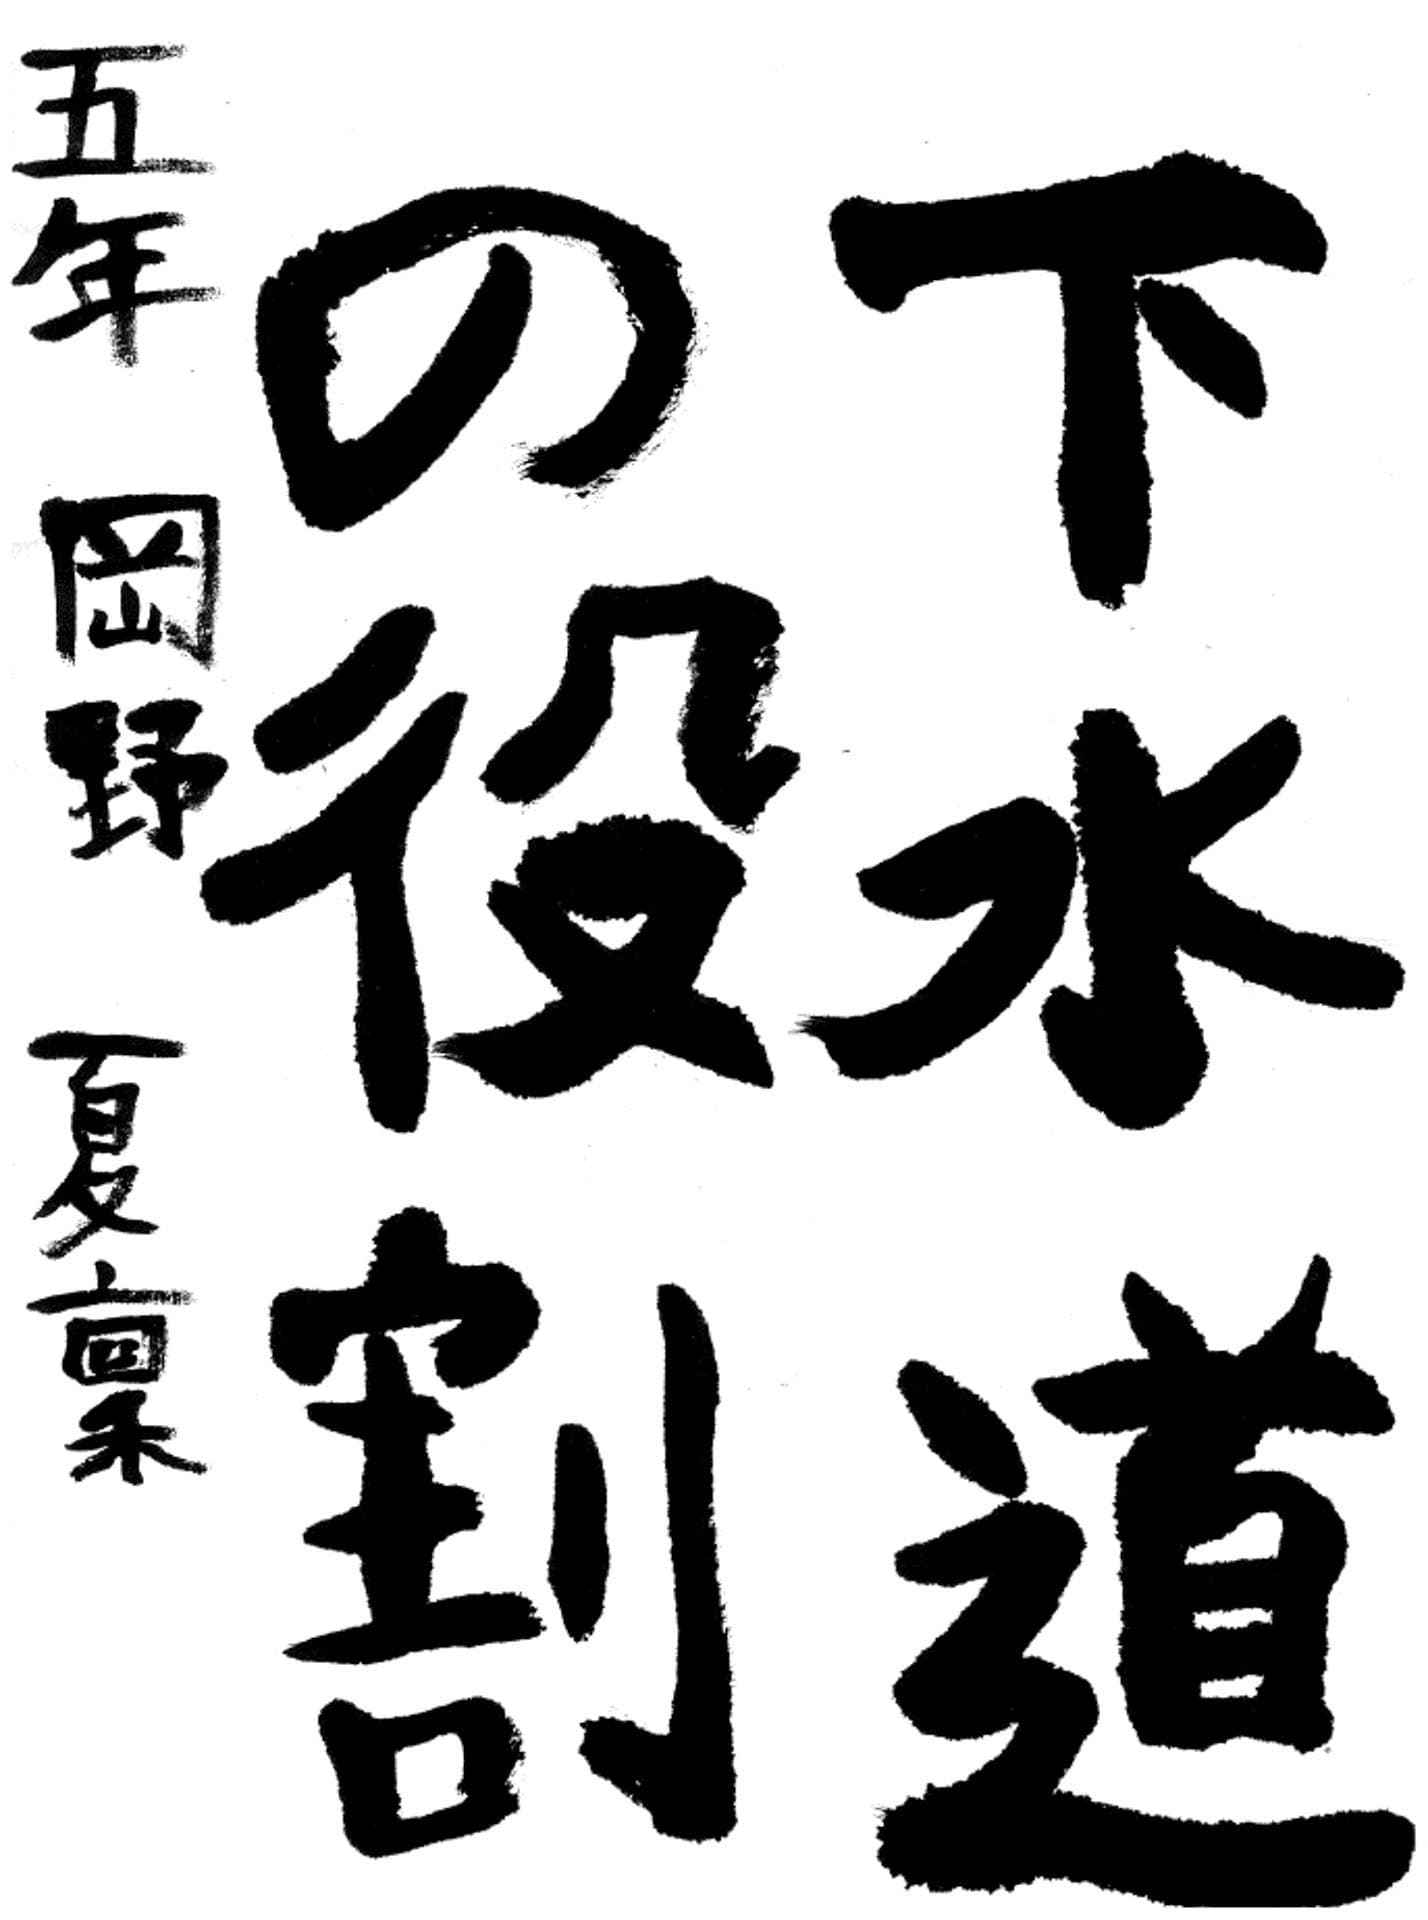 下水道
の役割
五年 岡野 夏稟